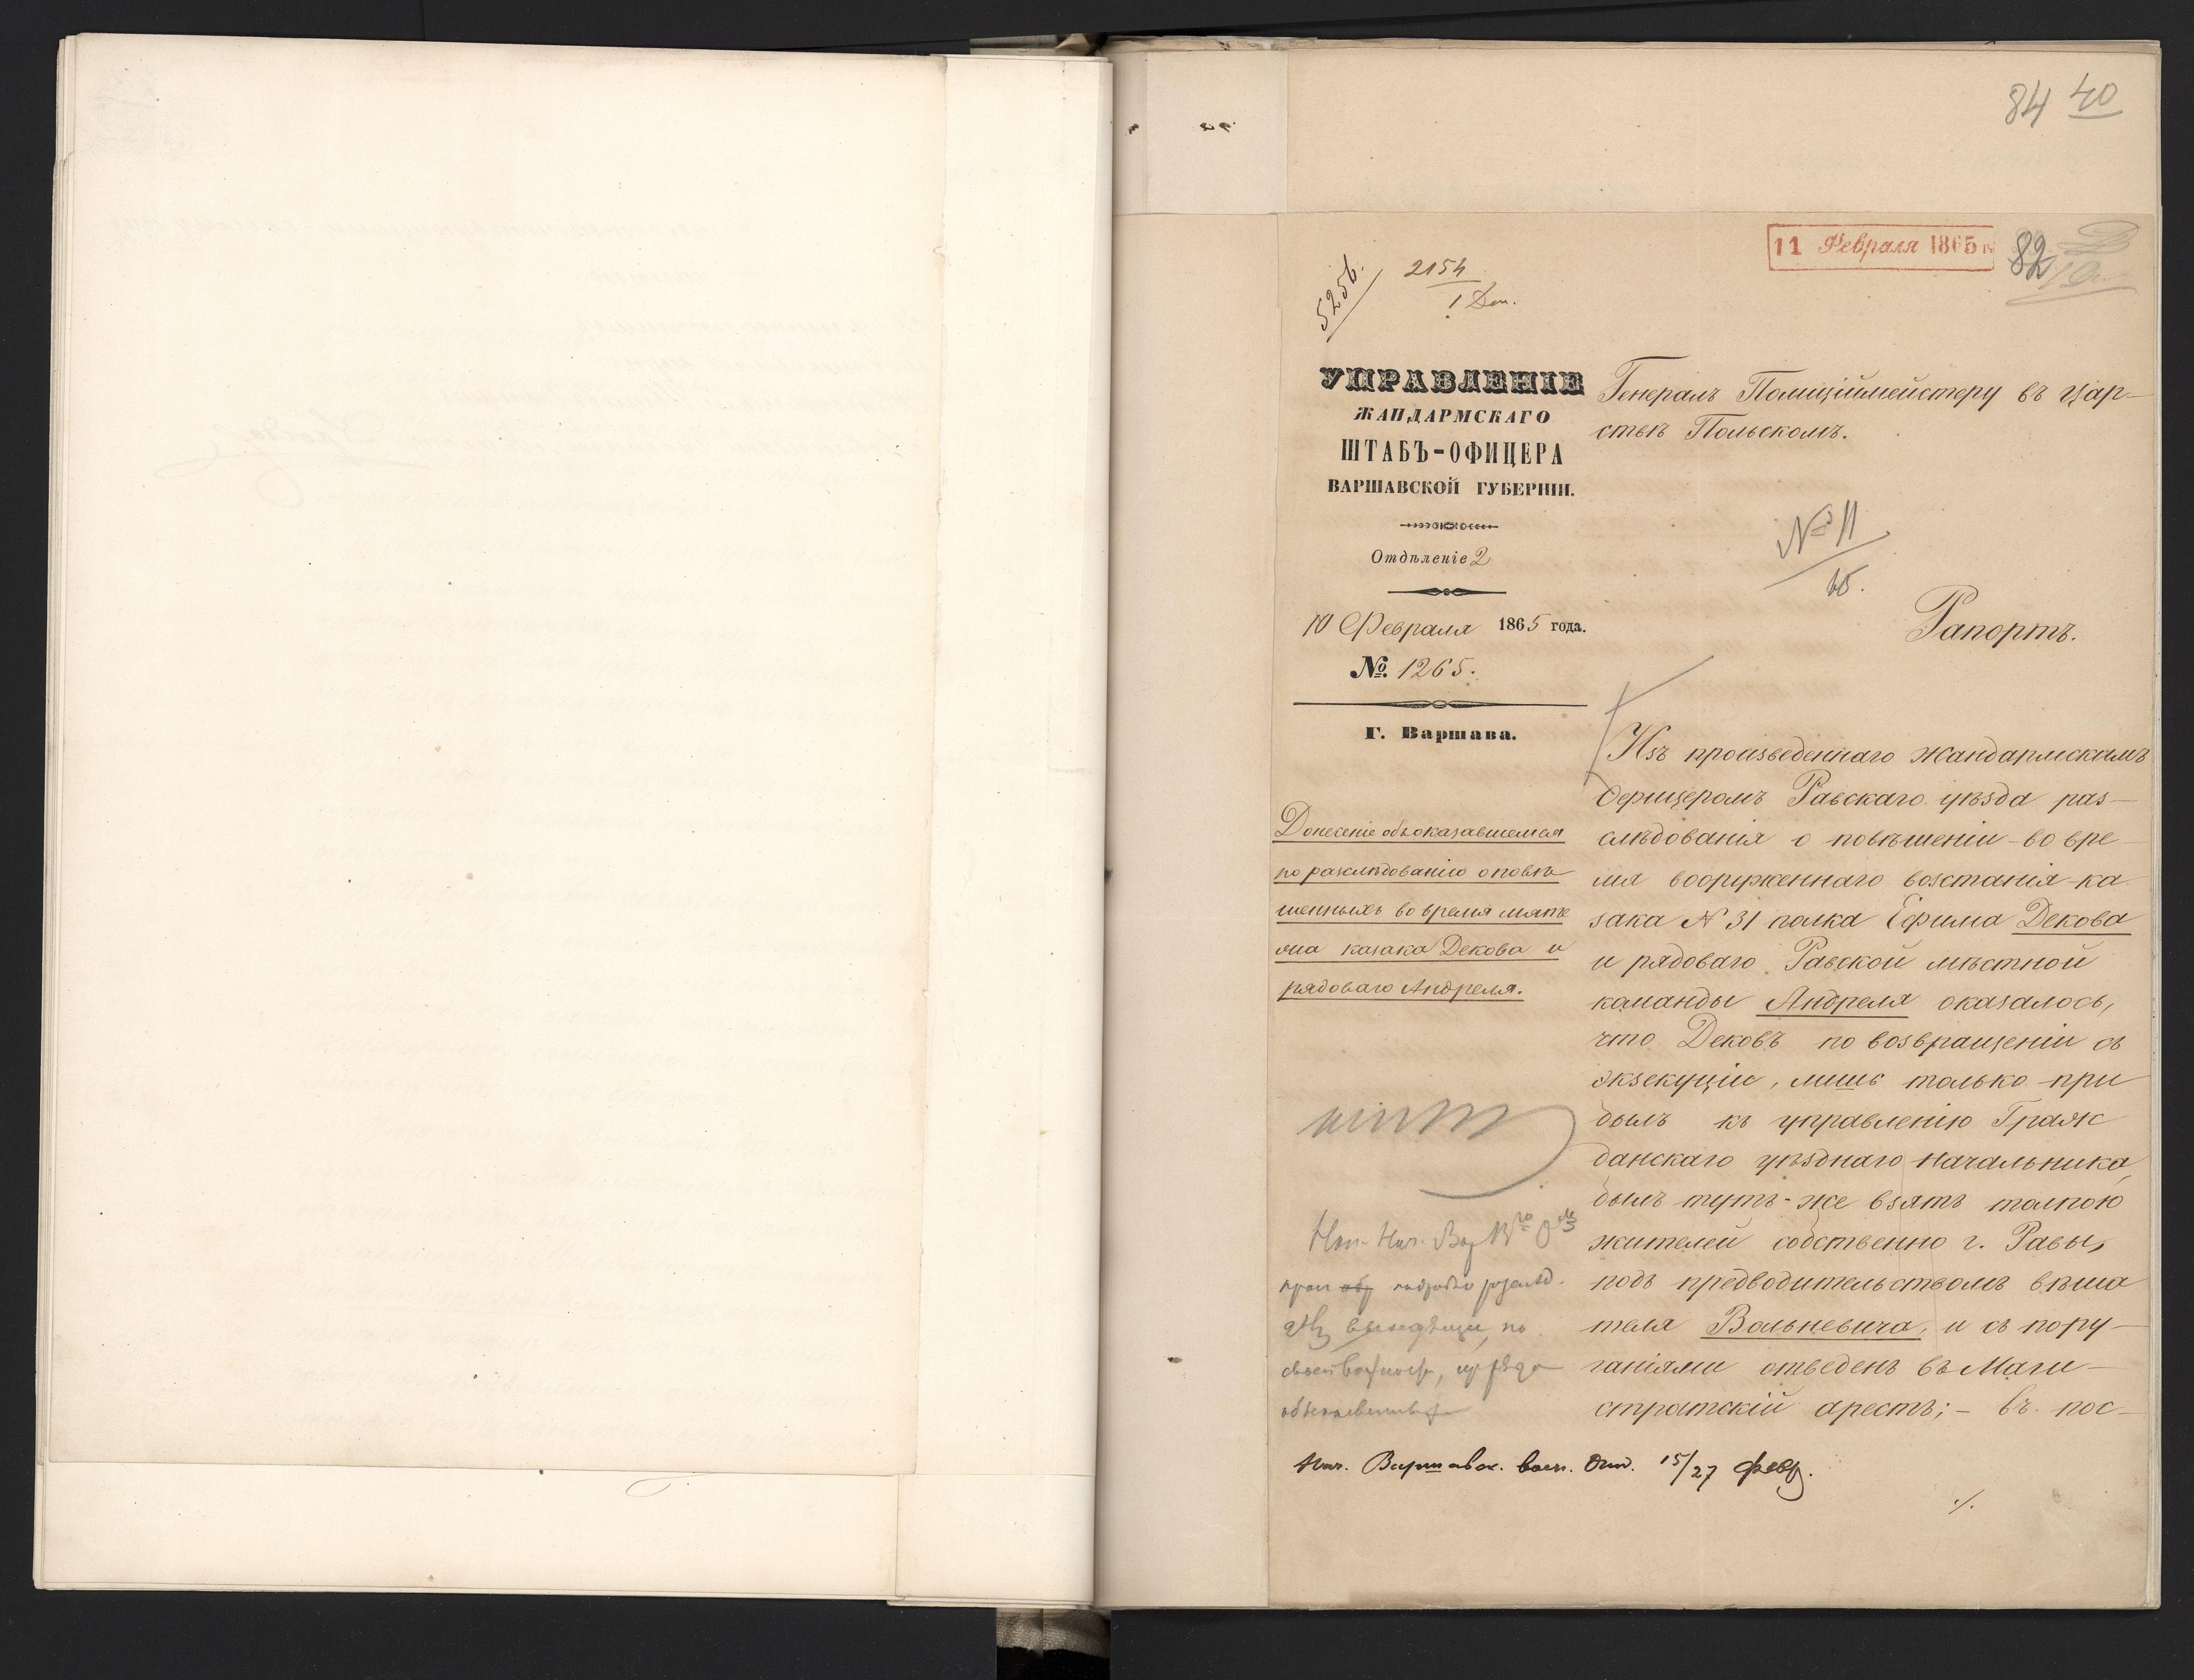 84 40
11 Февраля 1865 г.
82
525б.
2154
1 Деп.
УПРАВЛЕНІЕ
ЖАНДАРМСКАГО
ШТАБЪ-ОФИЦЕРА
ВАРШАВСКОЙ ГУБЕРНІИ.
Отдѣленіе 2
10 Февраля 1865 года.
№ 1265.
Г. Варшава.
Донесеніе объ оказавшемся
по разслѣдованію о повѣ
шенныхъ во время мяте
жа казака Декова и
рядоваго Андреля.
Генералъ Полиціймейстеру въ Цар-
ствѣ Польскомъ.
№ 11
65.
Рапортъ.
Изъ произведеннаго жандармскимъ
Офицеромъ Равскаго уѣзда раз-
слѣдованія о повѣшеніи во вре
мя вооруженнаго возстанія ка
зака № 31 полка Ефима Декова
и рядоваго Равской мѣстной
команды Андреля оказалось,
что Дековъ по возвращеніи съ
экзекуціи, лишь только при
былъ къ управленію Граж
данскаго уѣзднаго Начальника,
былъ тутъ-же взятъ толпою
жителей собственно г. Равы,
подъ предводительствомъ вѣша
теля Вольневича, и съ пору-
ганіями отведенъ въ Маги-
стратскій арестъ; - въ пос-
Нач. Варшавск. воен. Отд. 15/27 февр.
./.